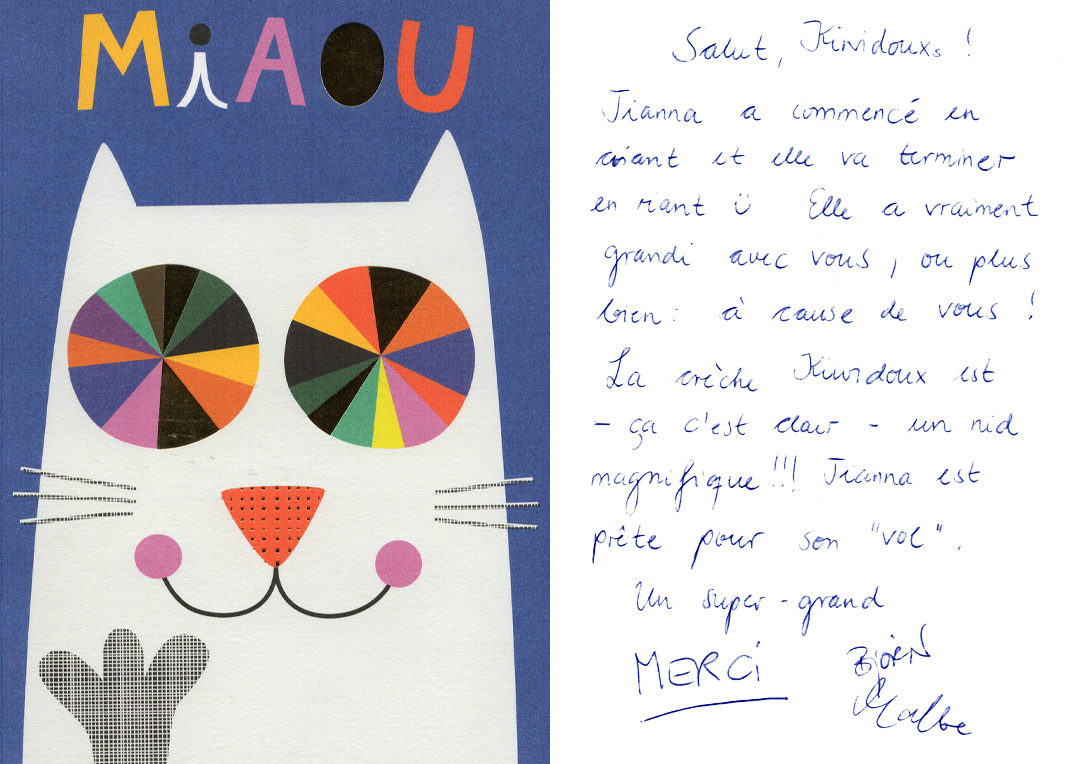 MiAOU
Salut, Kiwidoux !
Tianna a commencé en
criant et elle va terminer
en riant ü Elle a vraiment
grandi avec vous, ou plus
bien : à cause de vous !
La crèche Kiwidoux est
- ça c'est clair - un nid
magnifique !!! Tianna est
prête pour son "vol".
Un super-grand
MERCi
BJöRN